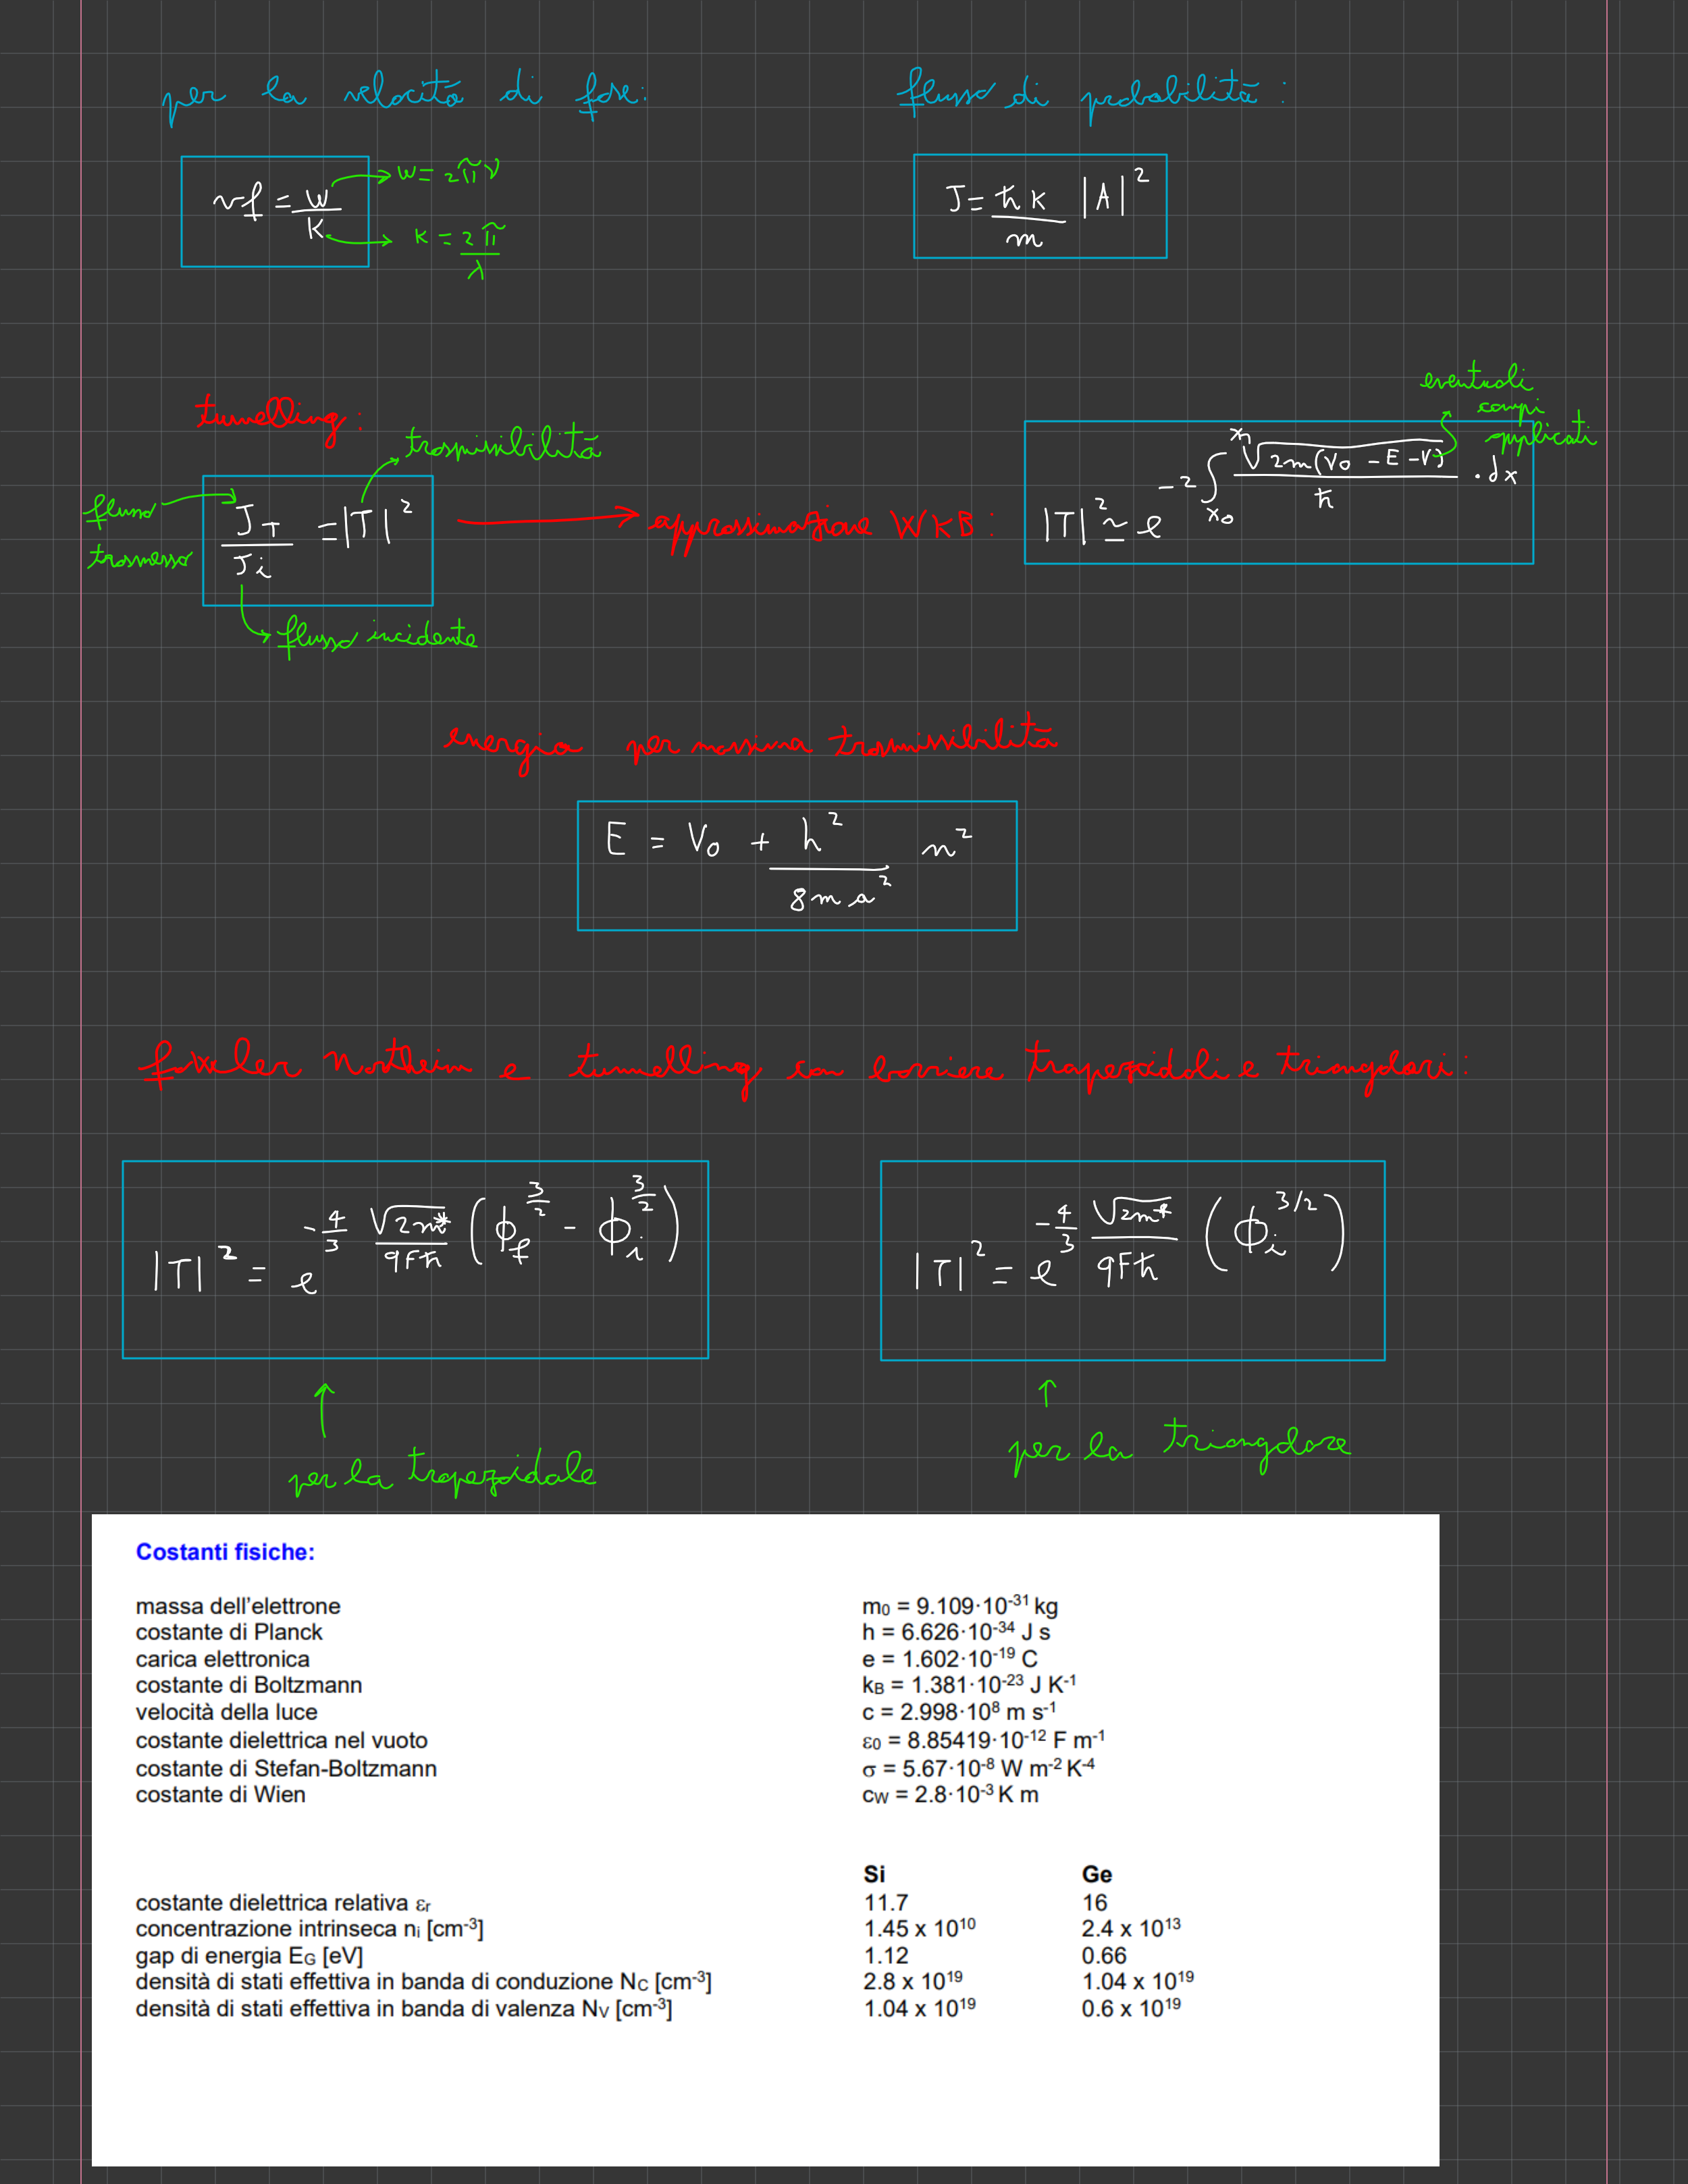 per la velocità di fase:
flusso di probabilità:
vf = w/k
w = 2πν
k = 2π/λ
J = ħk/m |A|²
tunnelling:
trasmissibilità
flusso trasmesso
J_T/J_i = |T|²
flusso incidente
approssimazione WKB:
|T|² ≃ e^(-2 ∫_{x₀}^{x₁} √(2m(V₀ - E - V))/ħ · dx)
eventuali
campi
applicati
energia per massima trasmissibilità
E = V₀ + h²/(8ma²) n²
fowler Nordheim e tunnelling con barriere trapezoidali e triangolari:
|T|² = e^(-4/3 √(2m*)/(qFħ) (ϕ_f^(3/2) - ϕ_i^(3/2)))
|T|² = e^(-4/3 √(2m*)/(qFħ) (ϕ_i^(3/2)))
per la trapezoidale
per la triangolare
Costanti fisiche:
massa dell'elettrone m₀ = 9.109·10⁻³¹ kg
costante di Planck h = 6.626·10⁻³⁴ J s
carica elettronica e = 1.602·10⁻¹⁹ C
costante di Boltzmann k_B = 1.381·10⁻²³ J K⁻¹
velocità della luce c = 2.998·10⁸ m s⁻¹
costante dielettrica nel vuoto ε₀ = 8.85419·10⁻¹² F m⁻¹
costante di Stefan-Boltzmann σ = 5.67·10⁻⁸ W m⁻² K⁻⁴
costante di Wien c_W = 2.8·10⁻³ K m
Si Ge
costante dielettrica relativa εr 11.7 16
concentrazione intrinseca nᵢ [cm⁻³] 1.45 x 10¹⁰ 2.4 x 10¹³
gap di energia E_G [eV] 1.12 0.66
densità di stati effettiva in banda di conduzione N_C [cm⁻³] 2.8 x 10¹⁹ 1.04 x 10¹⁹
densità di stati effettiva in banda di valenza N_V [cm⁻³] 1.04 x 10¹⁹ 0.6 x 10¹⁹